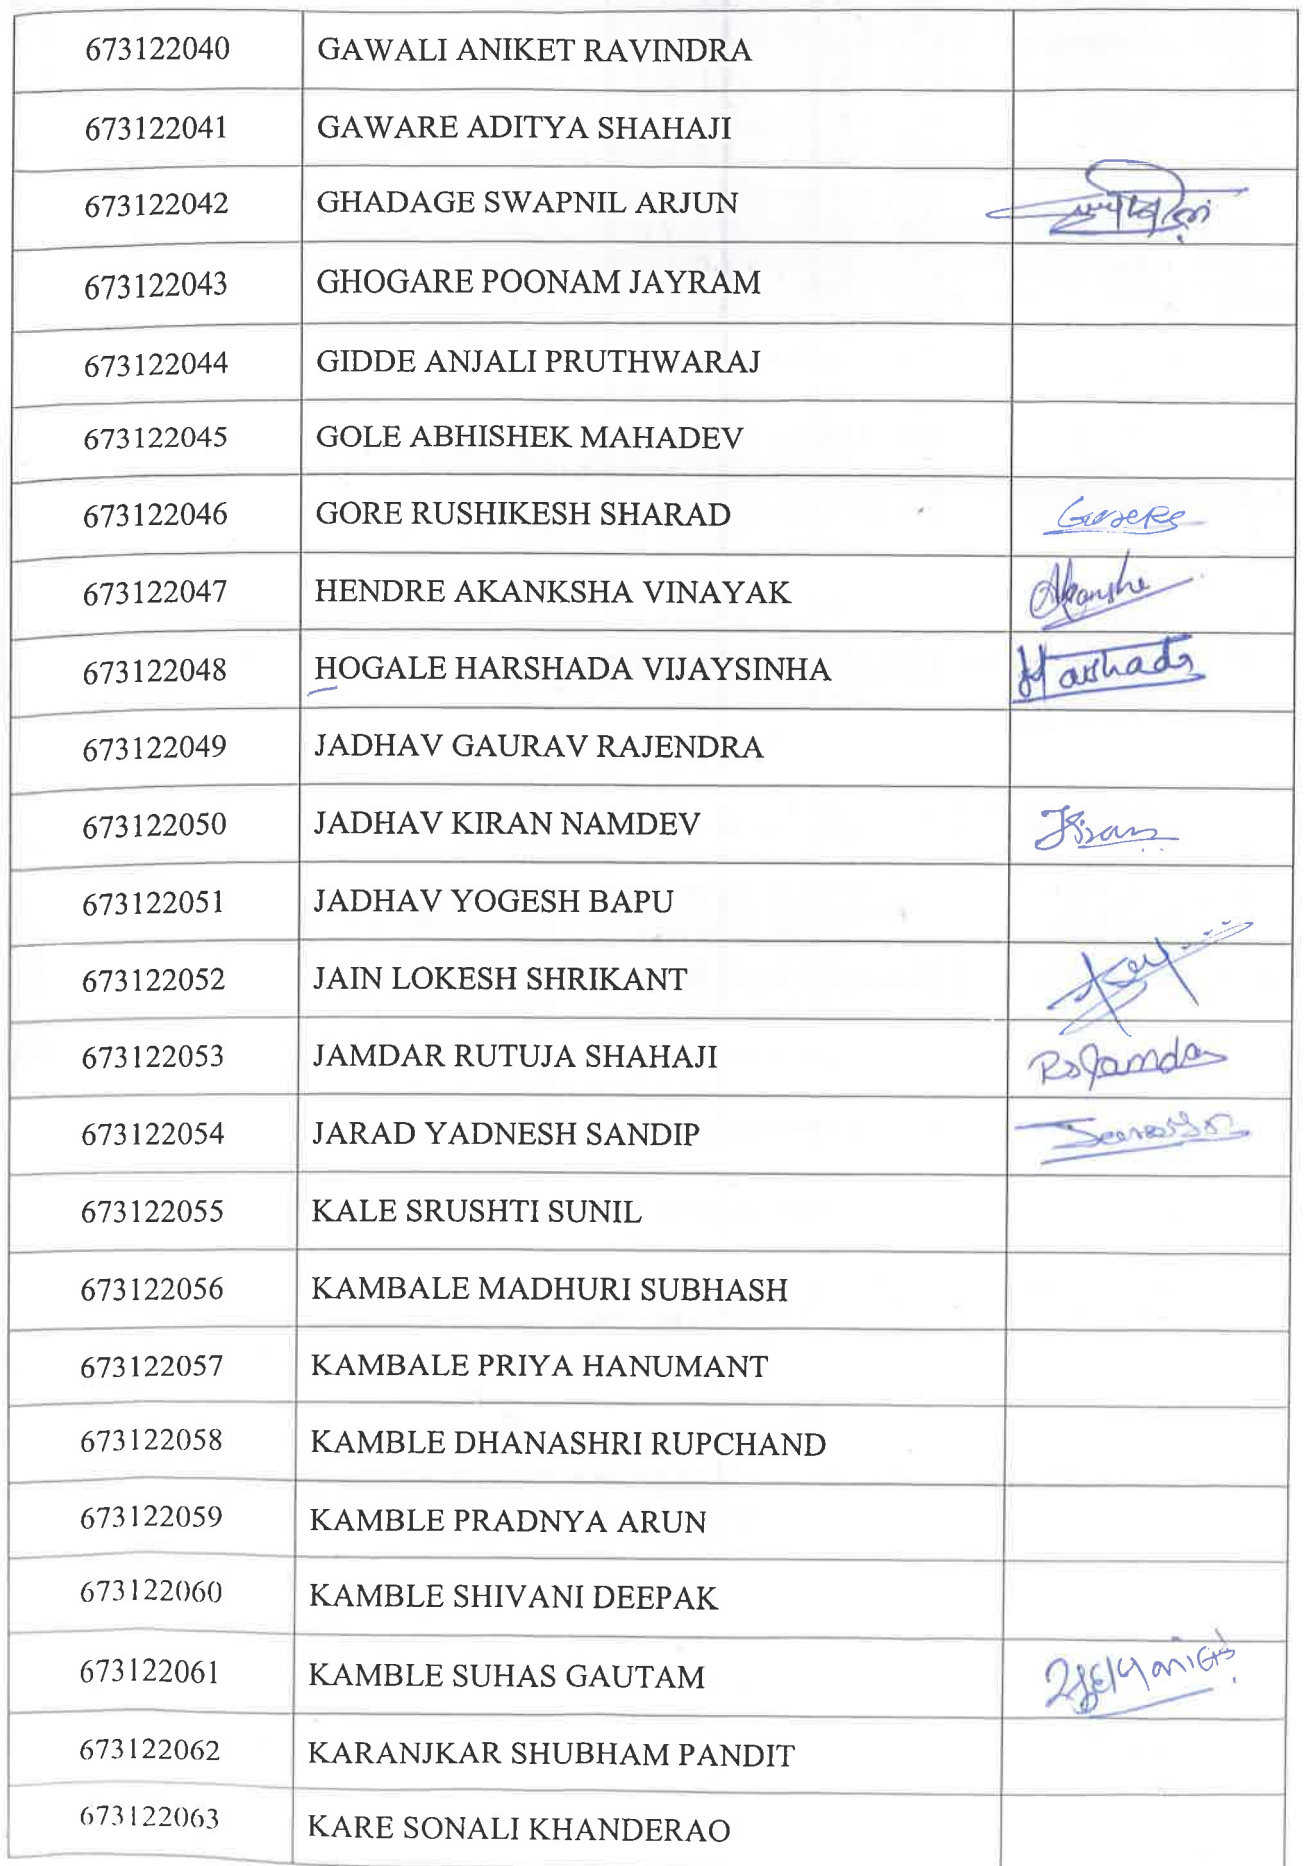 673122040 GAWALI ANIKET RAVINDRA
673122041 GAWARE ADITYA SHAHAJI
673122042 GHADAGE SWAPNIL ARJUN
673122043 GHOGARE POONAM JAYRAM
673122044 GIDDE ANJALI PRUTHWARAJ
673122045 GOLE ABHISHEK MAHADEV
673122046 GORE RUSHIKESH SHARAD
673122047 HENDRE AKANKSHA VINAYAK
673122048 HOGALE HARSHADA VIJAYSINHA Harshada
673122049 JADHAV GAURAV RAJENDRA
673122050 JADHAV KIRAN NAMDEV Kiran
673122051 JADHAV YOGESH BAPU
673122052 JAIN LOKESH SHRIKANT
673122053 JAMDAR RUTUJA SHAHAJI RSJamdar
673122054 JARAD YADNESH SANDIP
673122055 KALE SRUSHTI SUNIL
673122056 KAMBALE MADHURI SUBHASH
673122057 KAMBALE PRIYA HANUMANT
673122058 KAMBLE DHANASHRI RUPCHAND
673122059 KAMBLE PRADNYA ARUN
673122060 KAMBLE SHIVANI DEEPAK
673122061 KAMBLE SUHAS GAUTAM
673122062 KARANJKAR SHUBHAM PANDIT
673122063 KARE SONALI KHANDERAO